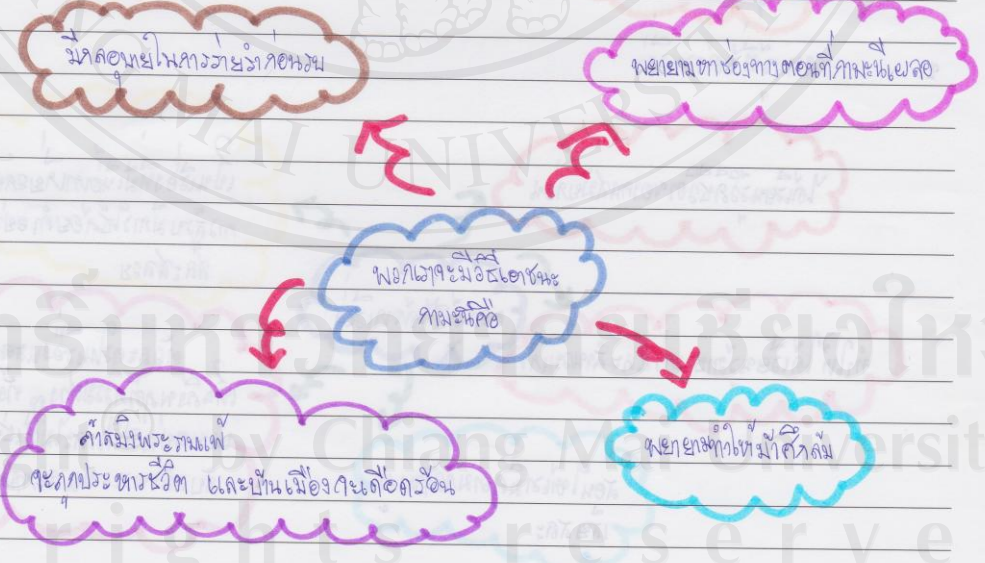 มีกลอุบายในการร่ายรำก่อนรบ
พยายามหาช่องทางตอนที่กามะนีเผลอ
พวกเราจะมีวิธีเอาชนะ
กามะนีคือ
ถ้าสมิงพระรามแพ้
จะถูกประหารชีวิต และบ้านเมืองจะเดือดร้อน
พยายามทำให้ม้าศึกล้ม
MAI UNIVERSIT
by Chiang Mai Universit
rights reserve